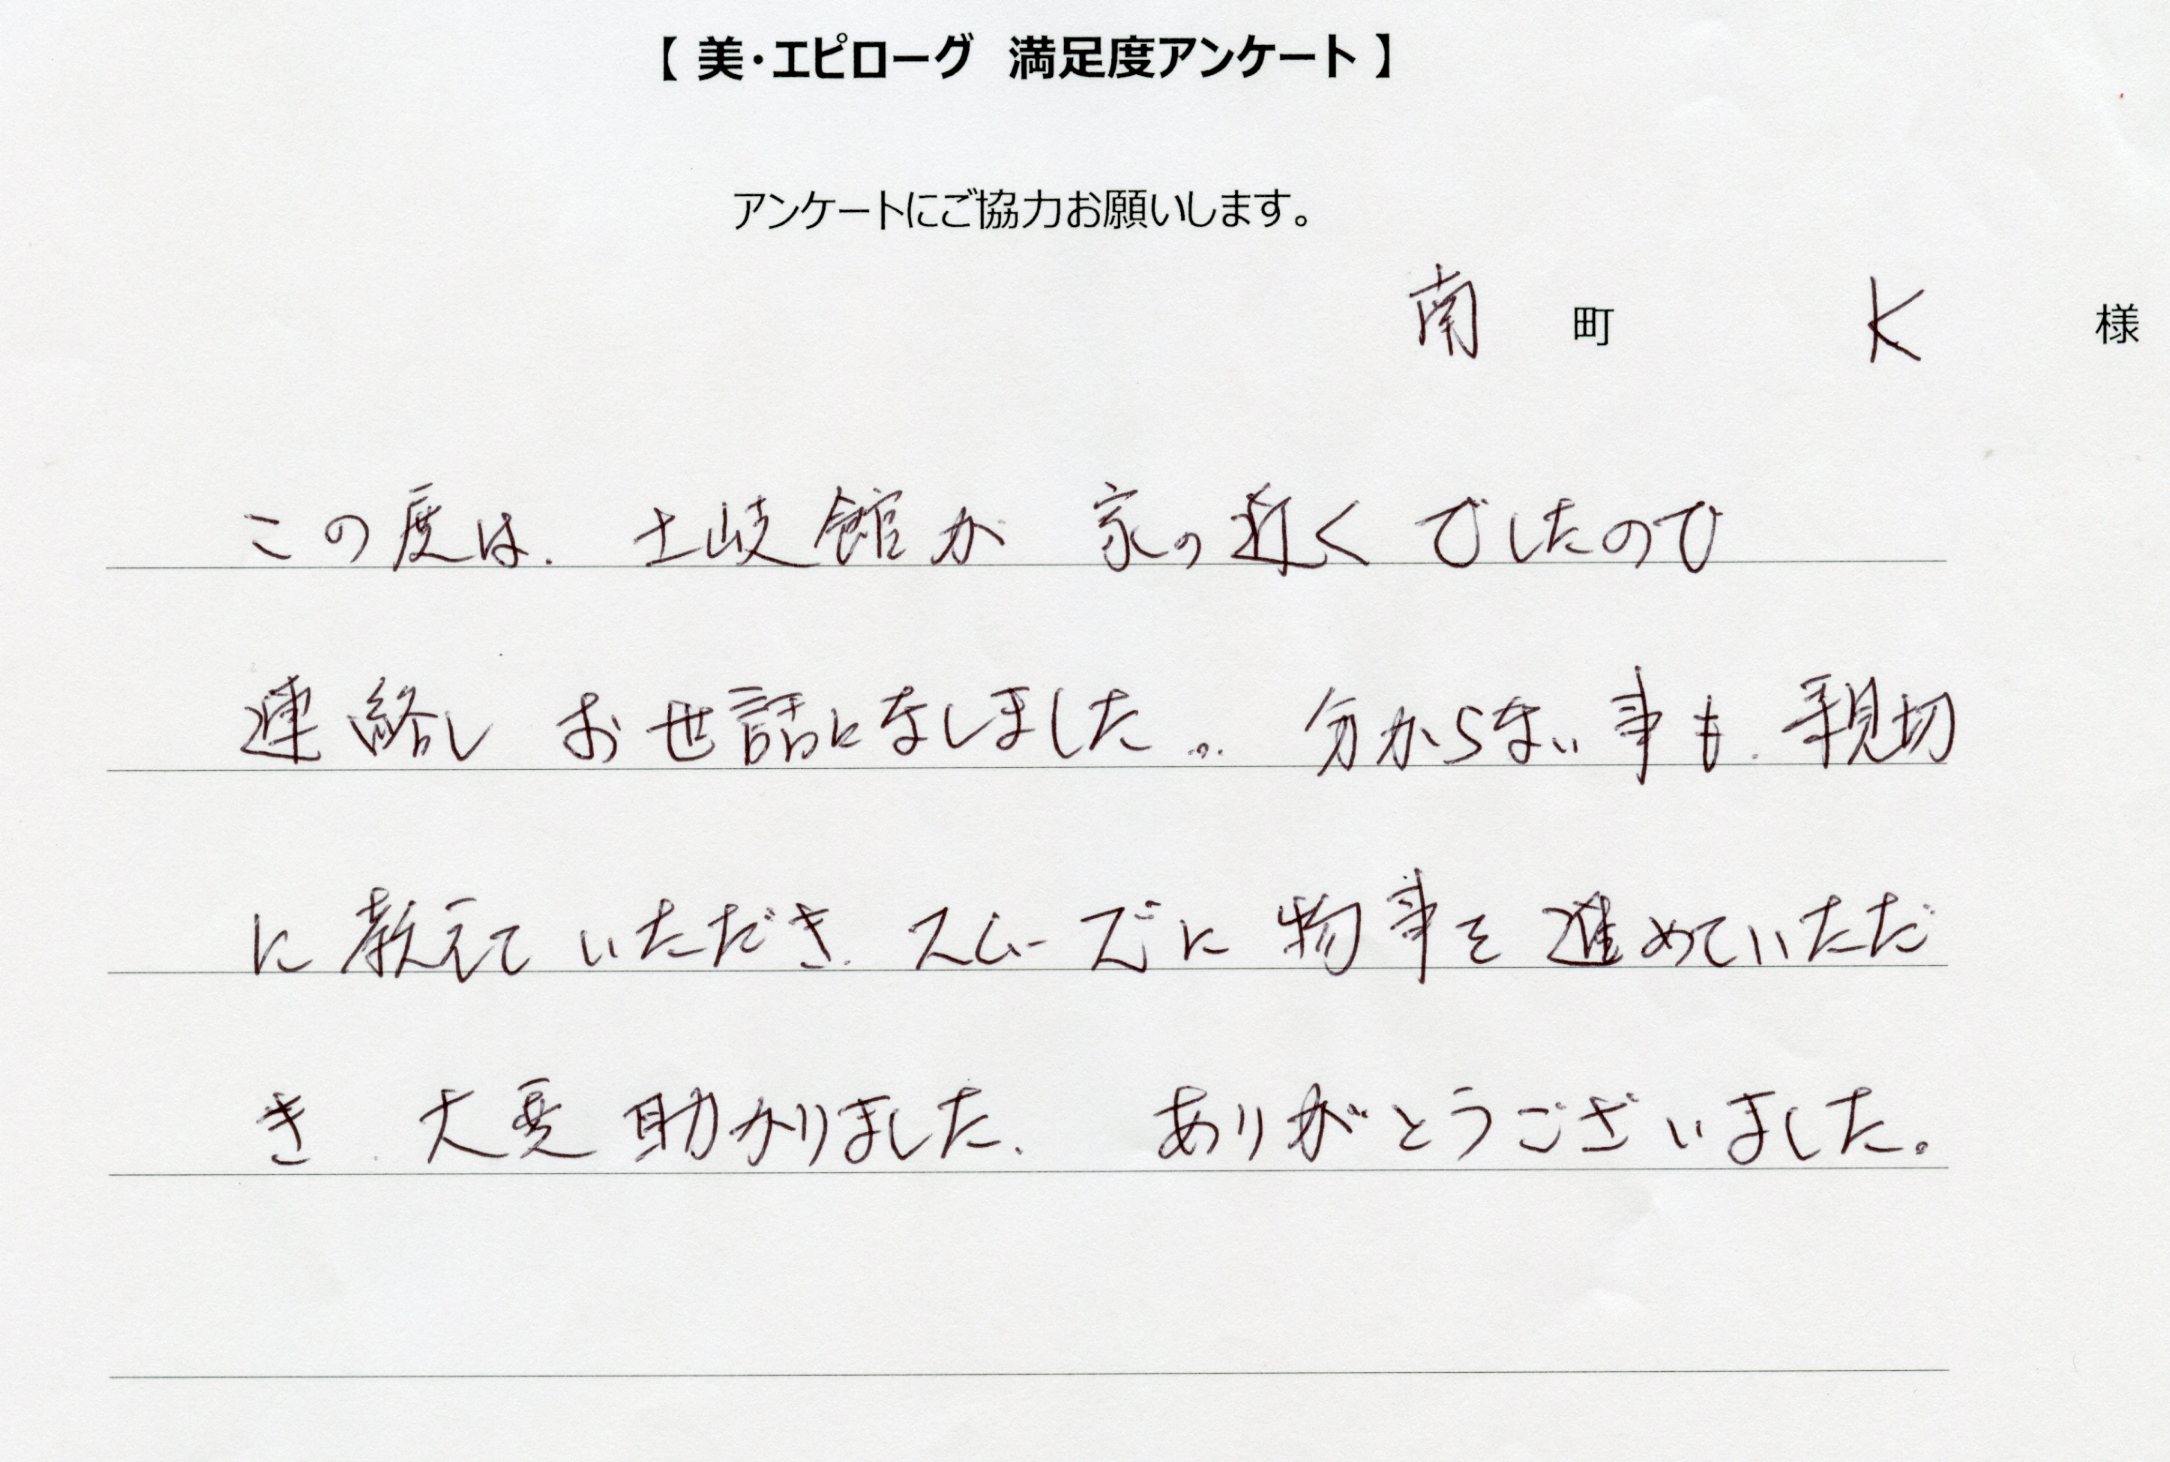 【 美・エピローグ 満足度アンケート 】
アンケートにご協力お願いします。
南 町 K 様
この度は、土岐館が 家の近くでしたので
連絡し お世話になしました。 分からない事も、親切
に教えていただき、スムーズに物事を進めていただ
き、大変助かりました、 ありがとうございました。